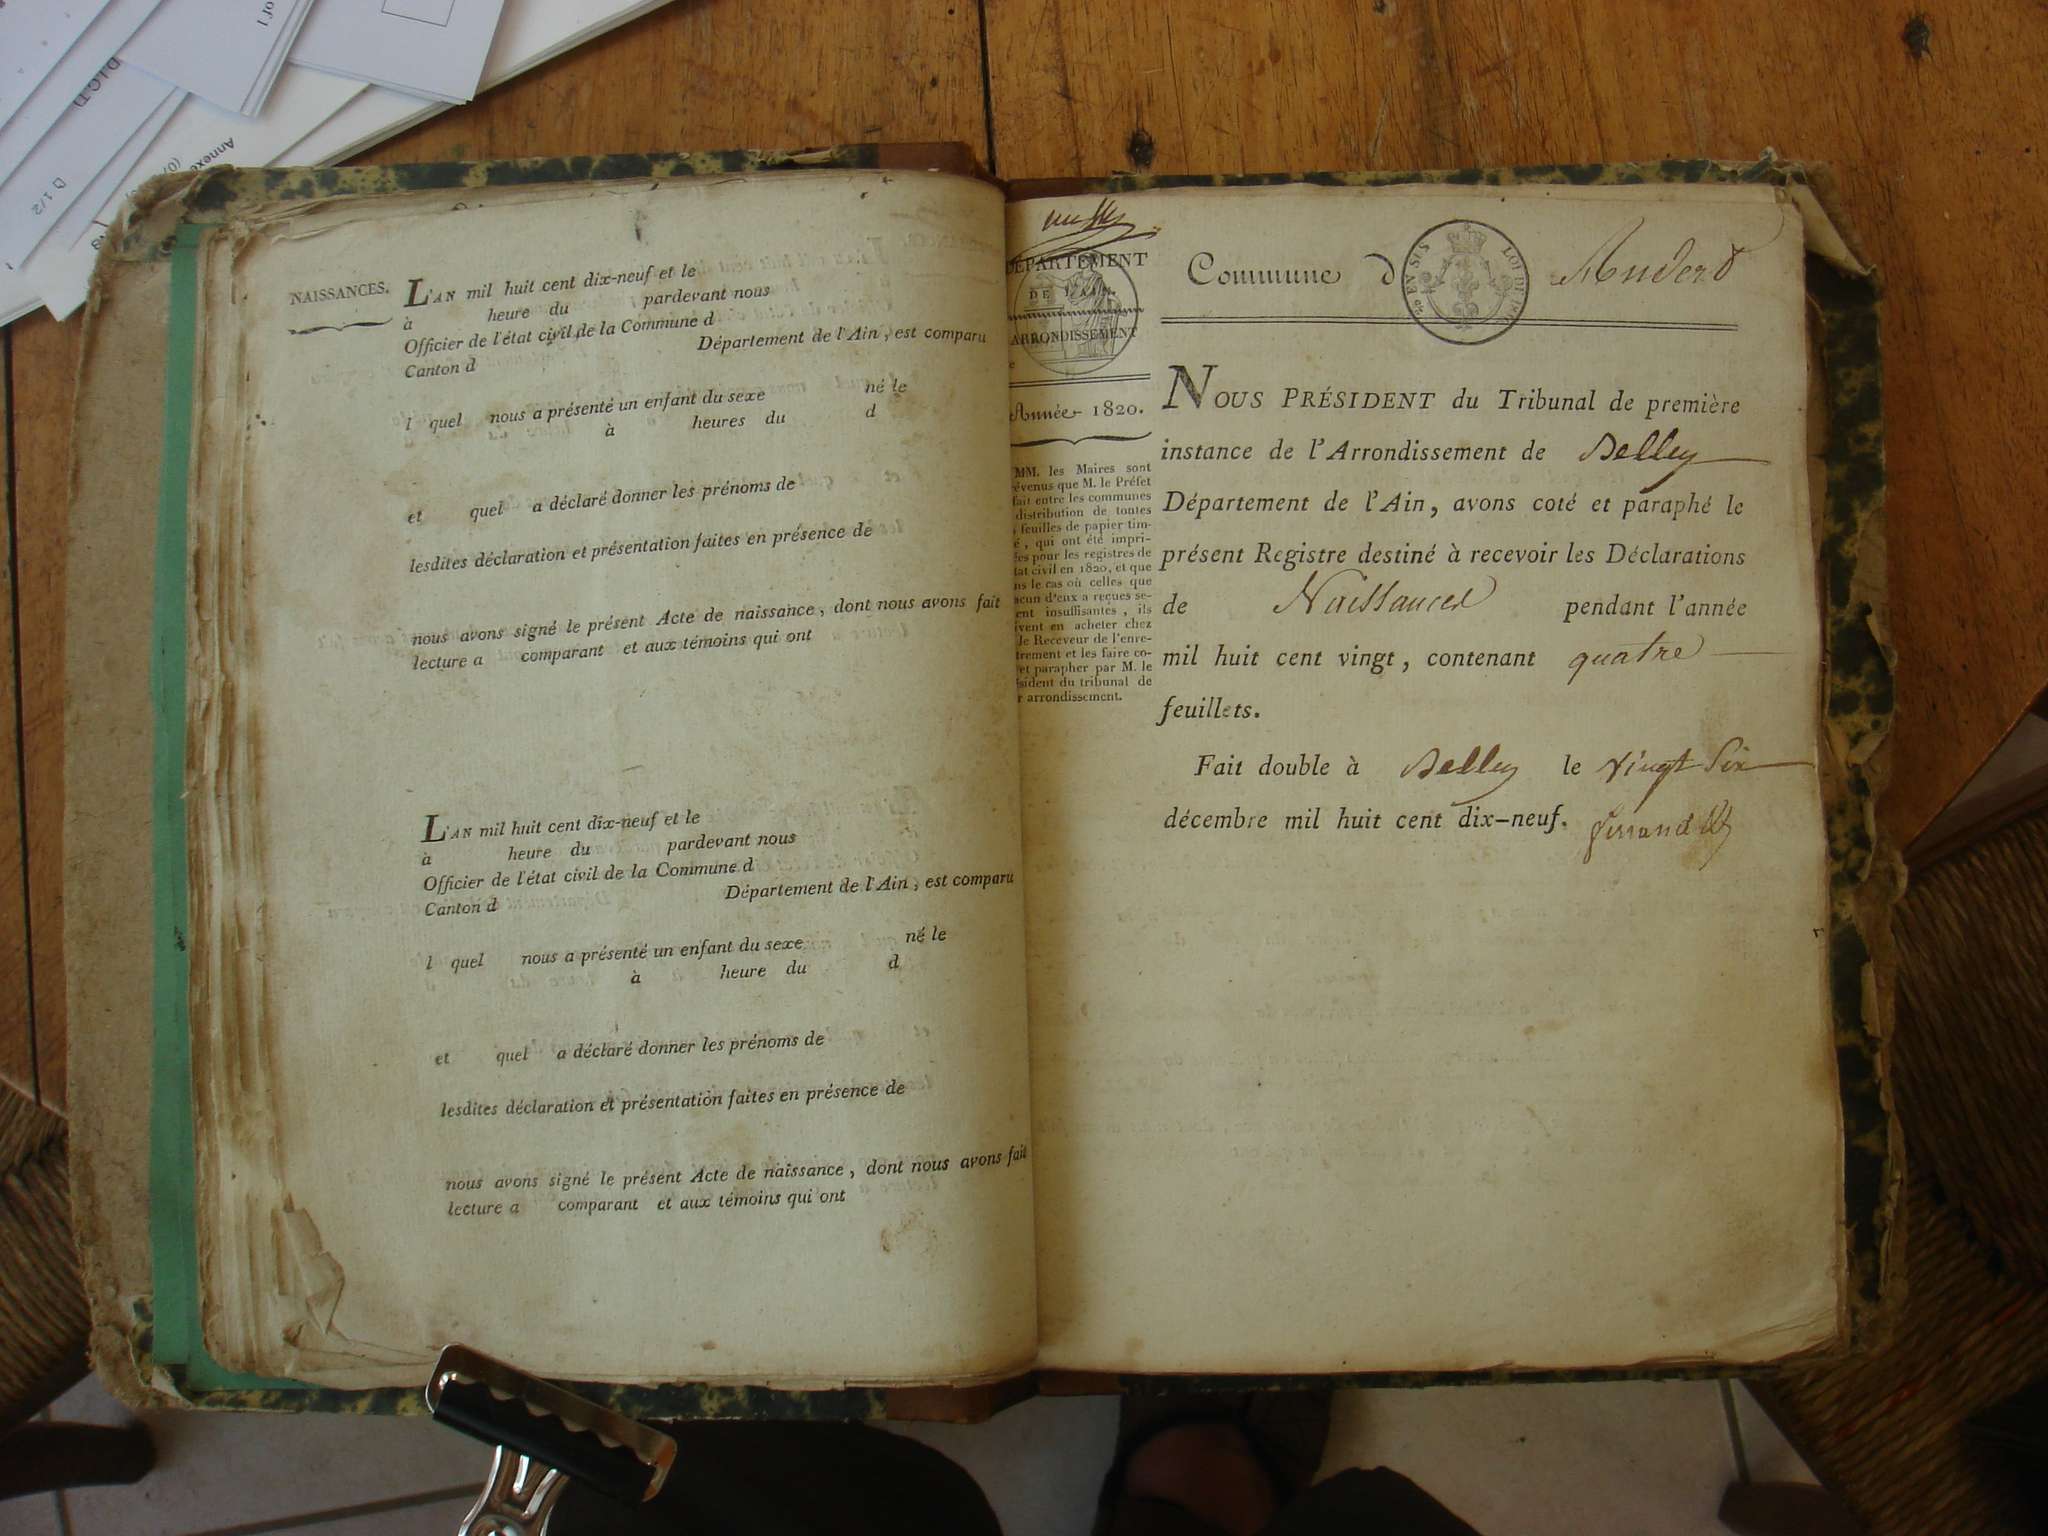 of 1
DLGD
Annexe
D 1/2
NAISSANCES.
L'AN mil huit cent dix-neuf et le
à heure du pardevant nous
Officier de l'état civil de la Commune d
Canton d Département de l'Ain, est comparu
l quel nous a présenté un enfant du sexe né le
à heures du d
et quel a déclaré donner les prénoms de
lesdites déclaration et présentation faites en présence de
nous avons signé le présent Acte de naissance, dont nous avons fait
lecture a comparant et aux témoins qui ont
L'AN mil huit cent dix-neuf et le
à heure du pardevant nous
Officier de l'état civil de la Commune d
Canton d Département de l'Ain, est comparu
l quel nous a présenté un enfant du sexe né le
à heure du d
et quel a déclaré donner les prénoms de
lesdites déclaration et présentation faites en présence de
nous avons signé le présent Acte de naissance, dont nous avons fait
lecture a comparant et aux témoins qui ont
DÉPARTEMENT
DE L'AIN.
ARRONDISSEMENT
Année 1820.
MM. les Maires sont
évenus que M. le Préfet
fait entre les communes
distribution de toutes
feuilles de papier tim-
é, qui ont été impri-
ées pour les registres de
tat civil en 1820, et que
ns le cas où celles que
acun d'eux a reçues se-
ent insuffisantes, ils
ivent en acheter chez
le Receveur de l'enre-
trement et les faire co-
et parapher par M. le
ésident du tribunal de
r arrondissement.
Commune d Andert
LOI DE
NOUS PRÉSIDENT du Tribunal de première
instance de l'Arrondissement de Belley
Département de l'Ain, avons coté et paraphé le
présent Registre destiné à recevoir les Déclarations
de Naissances pendant l'année
mil huit cent vingt, contenant quatre
feuillets.
Fait double à Belley le vingt Six
décembre mil huit cent dix-neuf.